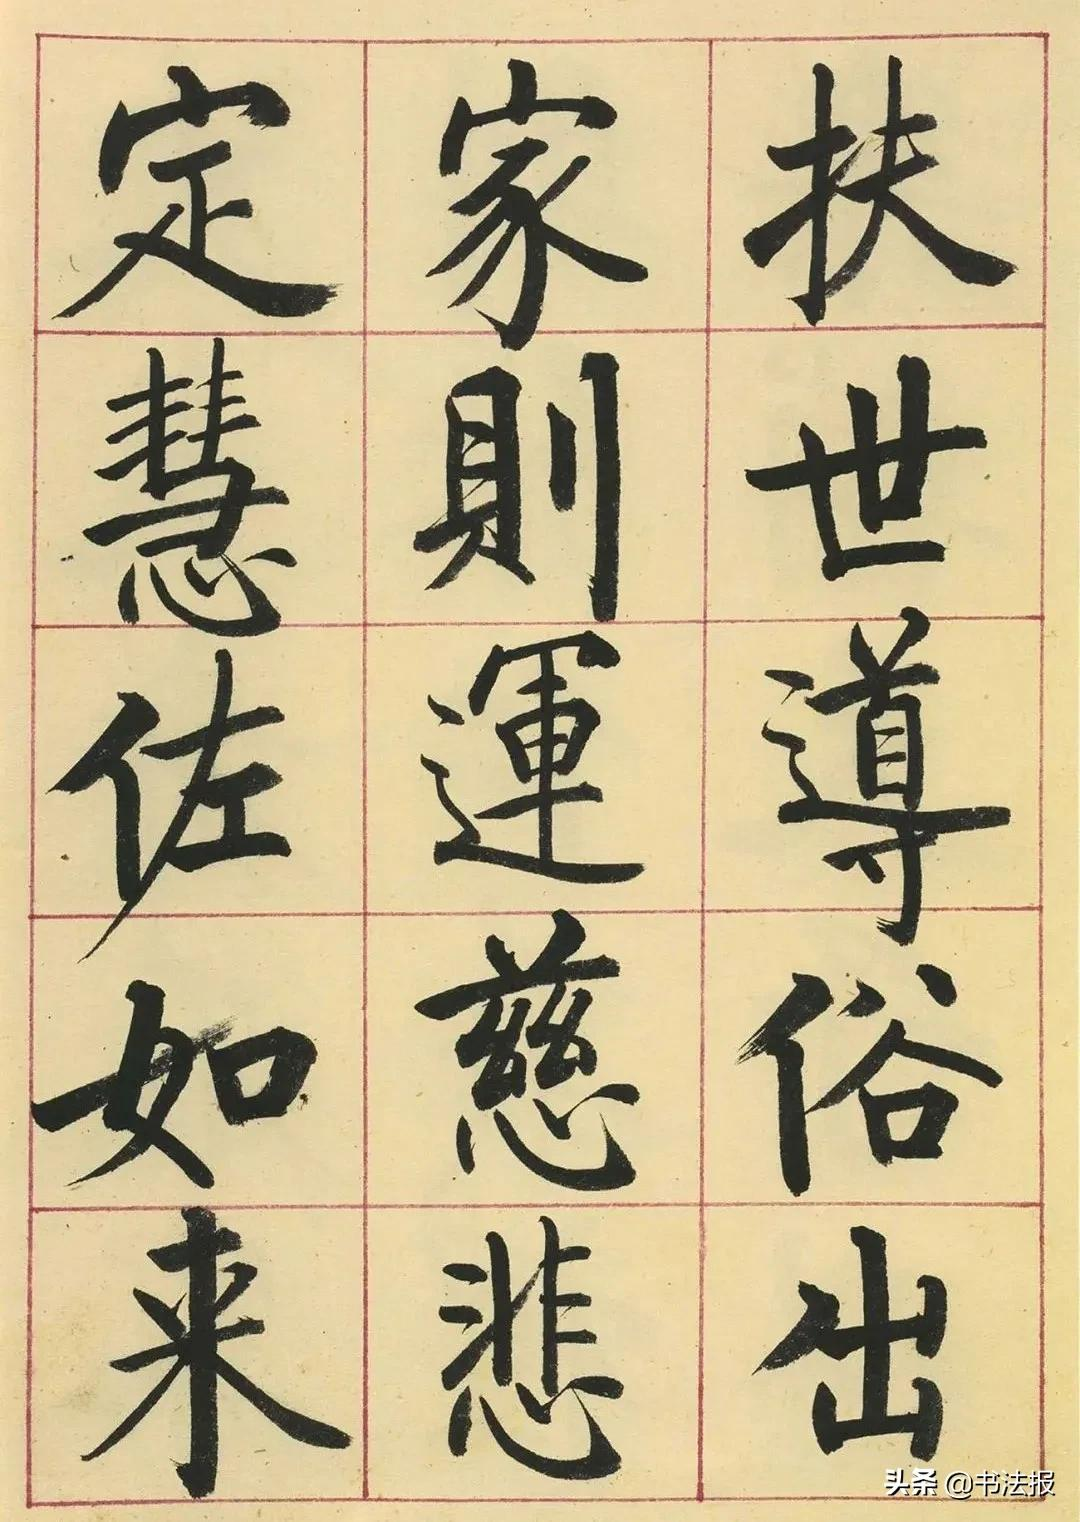 扶世導俗出
家則運慈悲
定慧佐如来
头条 @书法报